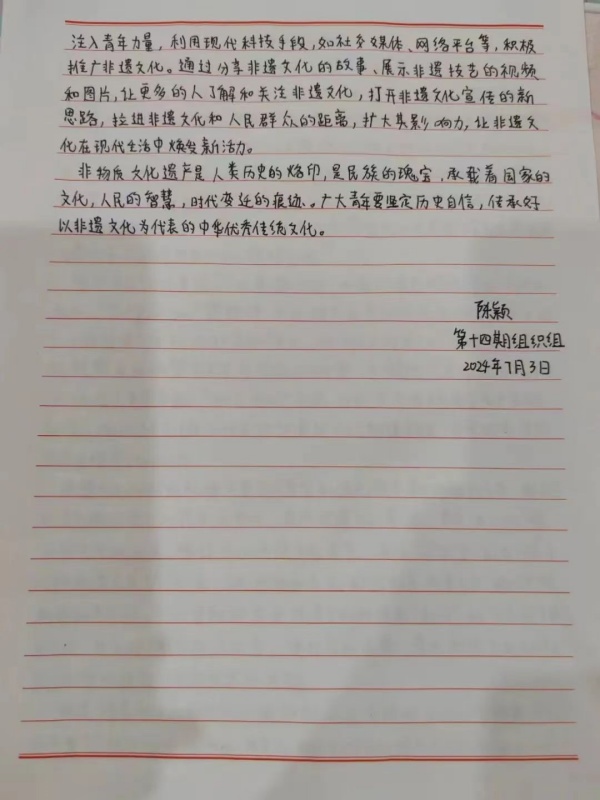 注入青年力量，利用现代科技手段，如社交媒体、网络平台等，积极
推广非遗文化。通过分享非遗文化的故事、展示非遗技艺的视频
和图片，让更多的人了解和关注非遗文化，打开非遗文化宣传的新
思路，拉进非遗文化和人民群众的距离，扩大其影响力，让非遗文
化在现代生活中焕发新活力。
非物质文化遗产是人类历史的烙印，是民族的瑰宝，承载着国家的
文化，人民的智慧，时代变迁的痕迹。广大青年要坚定历史自信，传承好
以非遗文化为代表的中华优秀传统文化。
陈颖
第十四期组织组
2024年7月3日